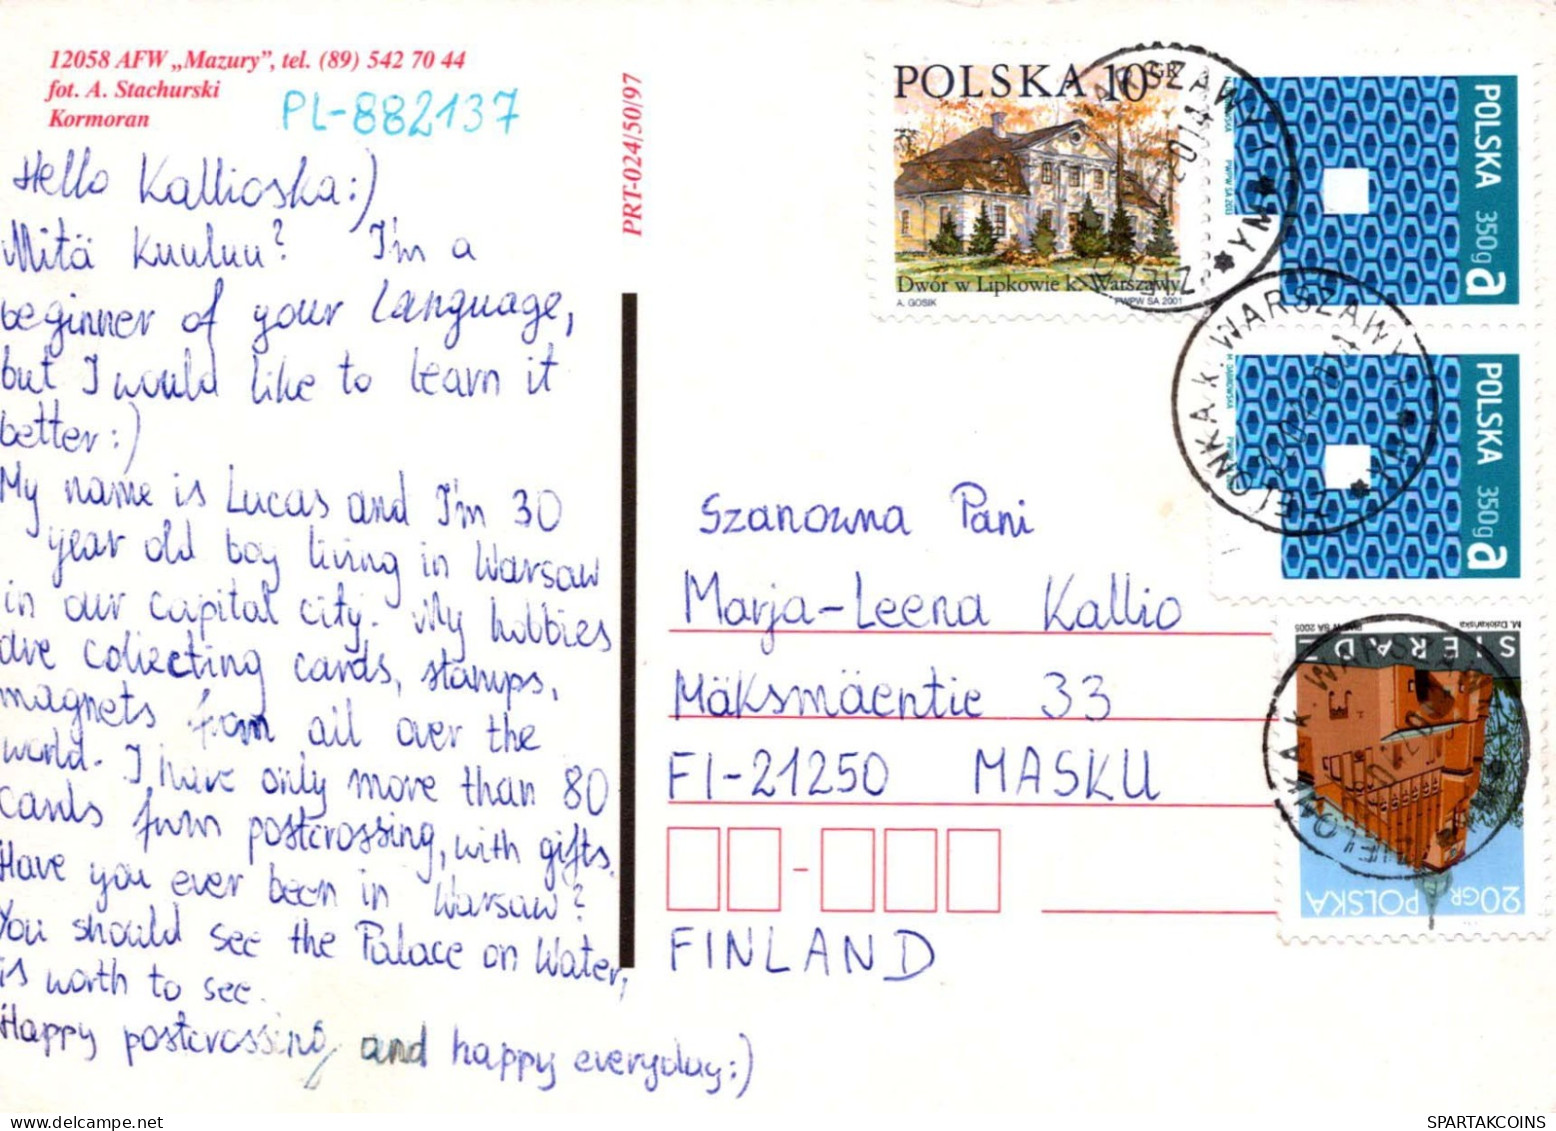 12058 AFW „Mazury”, tel. (89) 542 70 44
fot. A. Stachurski
Kormoran
PL-882137
PRT-024/50/97
Hello Kallioska:)
Mitä kuuluu? I'm a
beginner of your language,
but I would like to learn it
better:)
My name is Lucas and I'm 30
year old boy living in Warsaw
in our capital city. My hobbies
are collecting cards, stamps,
magnets from all over the
world. I have only more than 80
cards from postcrossing, with gifts.
Have you ever been in Warsaw?
You should see the Palace on Water,
is worth to see.
Happy postcrossing and happy everyday:)
POLSKA 10GR
Dwór w Lipkowie k. Warszawy
A. GOSIK PWPW SA 2001
POLSKA 350g a
POLSKA 350g a
ZIELONKA k. WARSZAWY
SIERADZ
M. Dziekańska PWPW SA 2005
POLSKA 20GR
Szanowna Pani
Marja-Leena Kallio
Mäksmäentie 33
FI-21250 MASKU
FINLAND
SPARTAKCOINS.COM